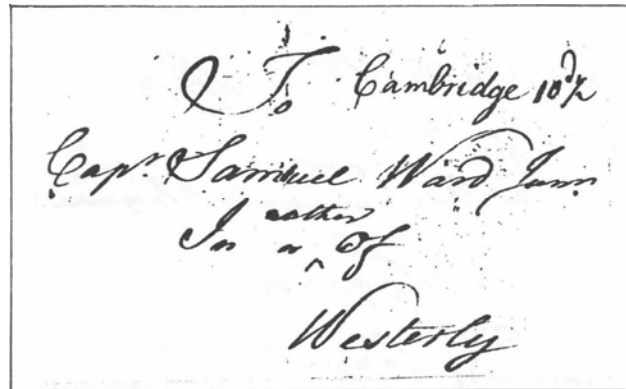 To Cambridge 10d½
Capr Samuel Ward Junr
rather
In or ^ Of
Westerly